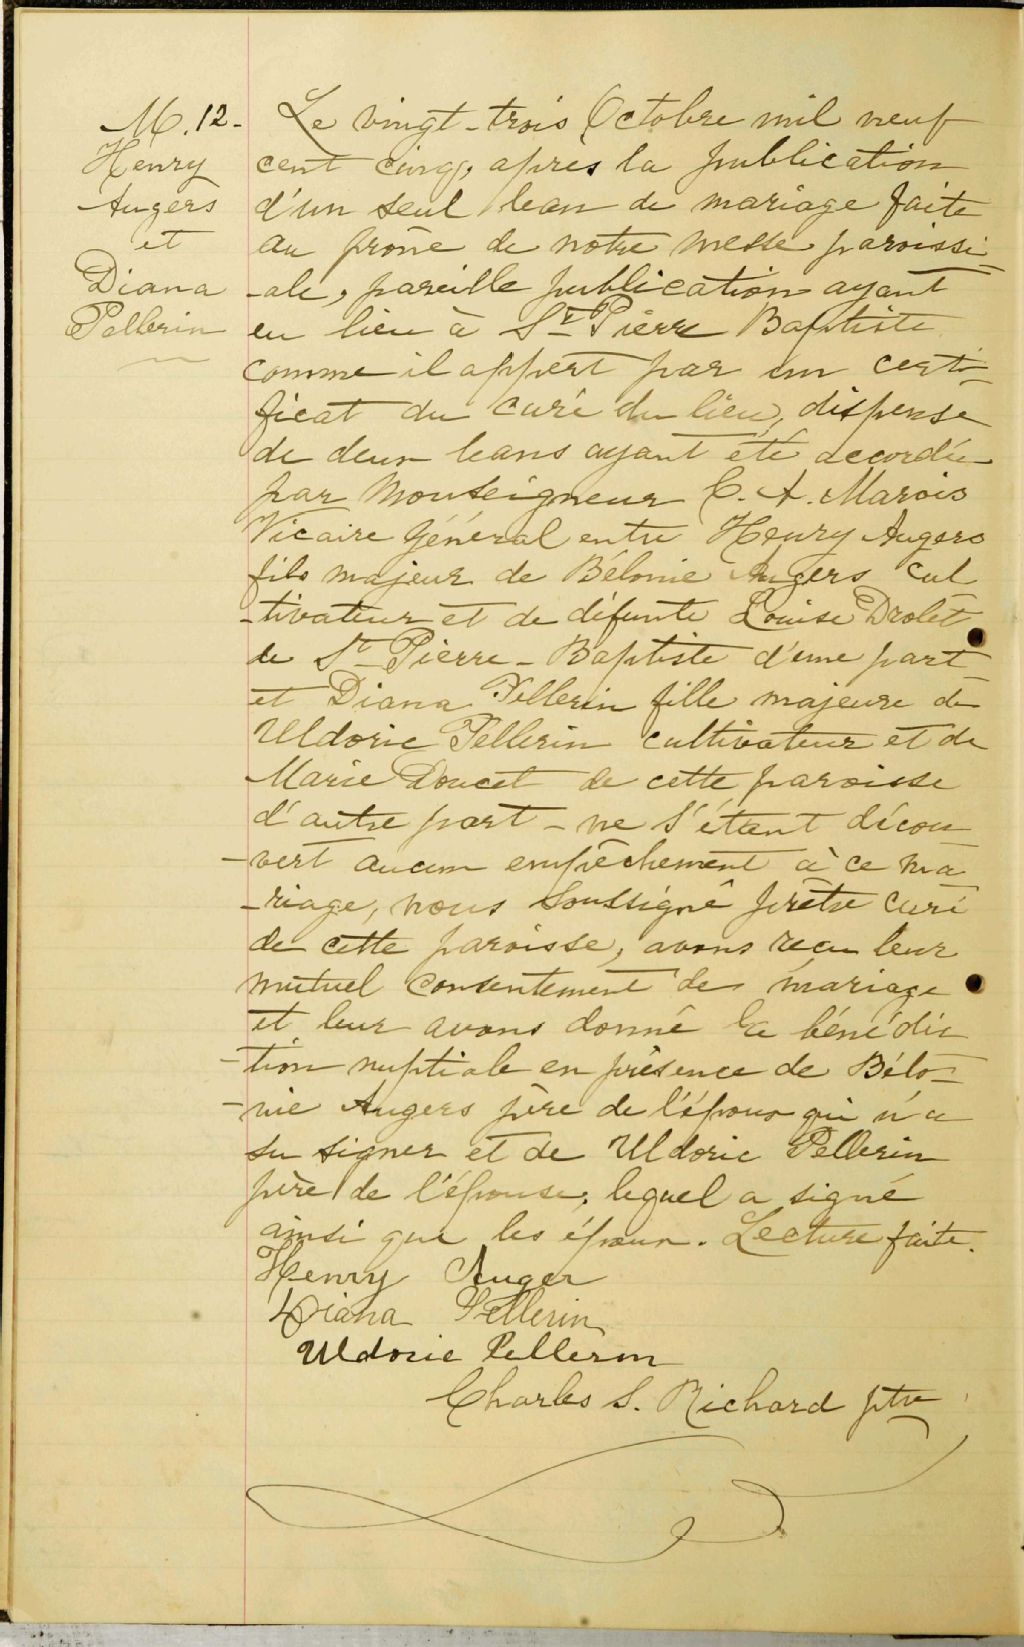 M. 12-
Henry
Augers
et
Diana
Pellerin
Le vingt-trois Octobre mil neuf
cent cinq, apres la publication
d'un seul ban de mariage faite
au prône de notre messe paroissi-
-ale, pareille publication ayant
eu lieu à St Pierre Baptiste
comme il appert par un certi-
ficat du curé du lieu, dispense
de deux bans ayant été accordée
par Monseigneur C. A. Marois
Vicaire Général entre Henry Augers
fils majeur de Bélonie Augers cul
-tivateur et de défunte Louise Drolet
de St Pierre-Baptiste d'une part
et Diana Pellerin fille majeure de
Uldoric Pellerin cultivateur et de
Marie Doucet de cette paroisse
d'autre part - ne s'étant décou
-vert aucun empêchement à ce ma
-riage, nous soussigné prêtre curé
de cette paroisse, avons reçu leur
mutuel consentement de mariage
et leur avons donné la bénédic
-tion nuptiale en présence de Bélo-
-nie Augers père de l'époux qui n'a
su signer et de Uldoric Pellerin
père de l'épouse, lequel a signé
ainsi que les époux. Lecture faite.
Henry Auger
Diana Pellerin
Uldoric Pellerin
Charles S. Richard ptre